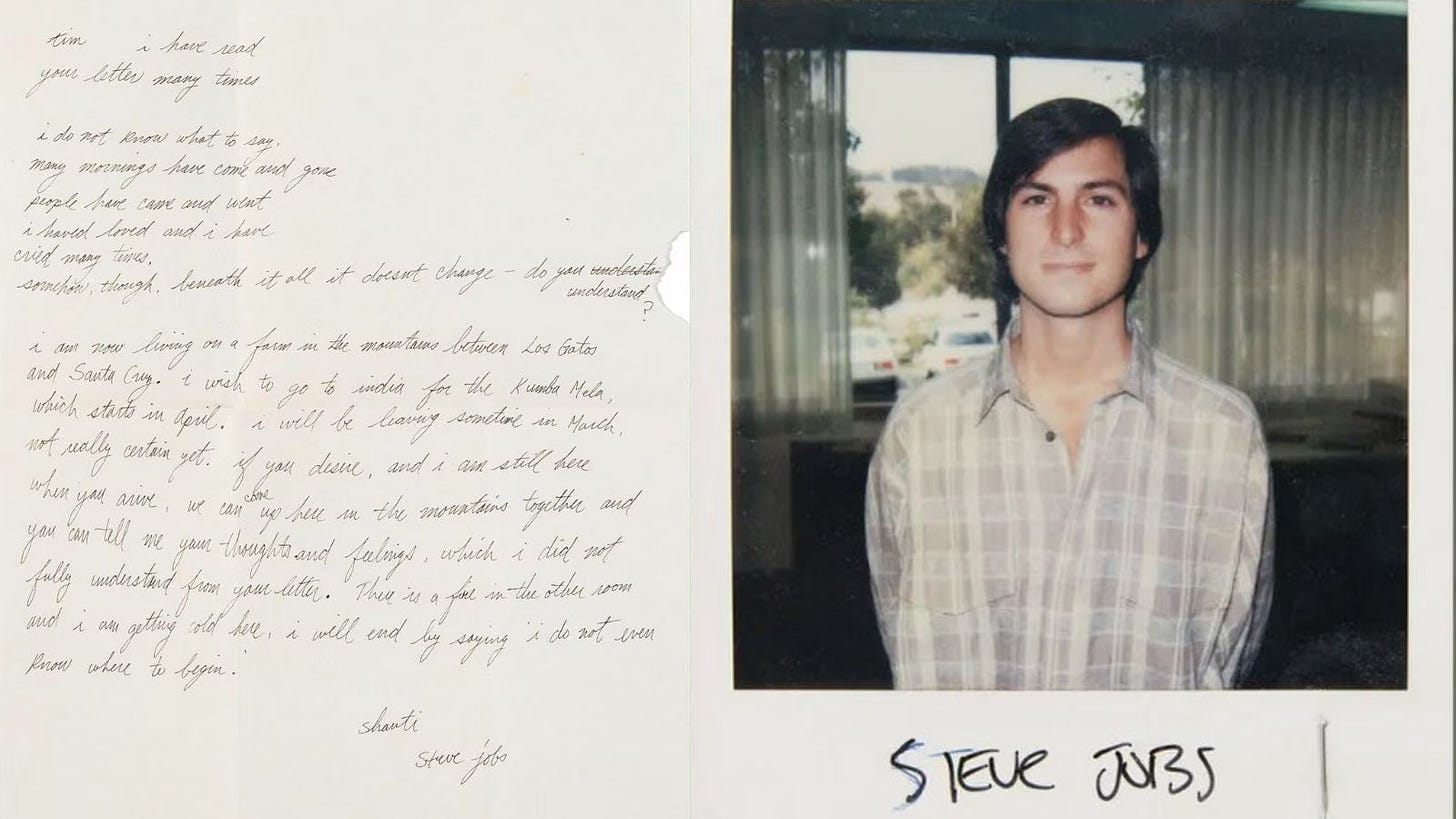 tim i have read
your letter many times
i do not know what to say.
many mornings have come and gone
people have came and went
i haved loved and i have
cried many times.
somehow, though, beneath it all it doesnt change - do you understa
understand
?
i am now living on a farm in the mountains between Los Gatos
and Santa Cruz. i wish to go to india for the Kumba Mela,
which starts in April. i will be leaving sometime in March,
not really certain yet. if you desire, and i am still here
when you arive, we can come up here in the mountains together and
you can tell me your thoughts and feelings, which i did not
fully understand from your letter. There is a fire in the other room
and i am getting cold here. i will end by saying 'i do not even
know where to begin.'
shanti
steve jobs
STEVE JOBS